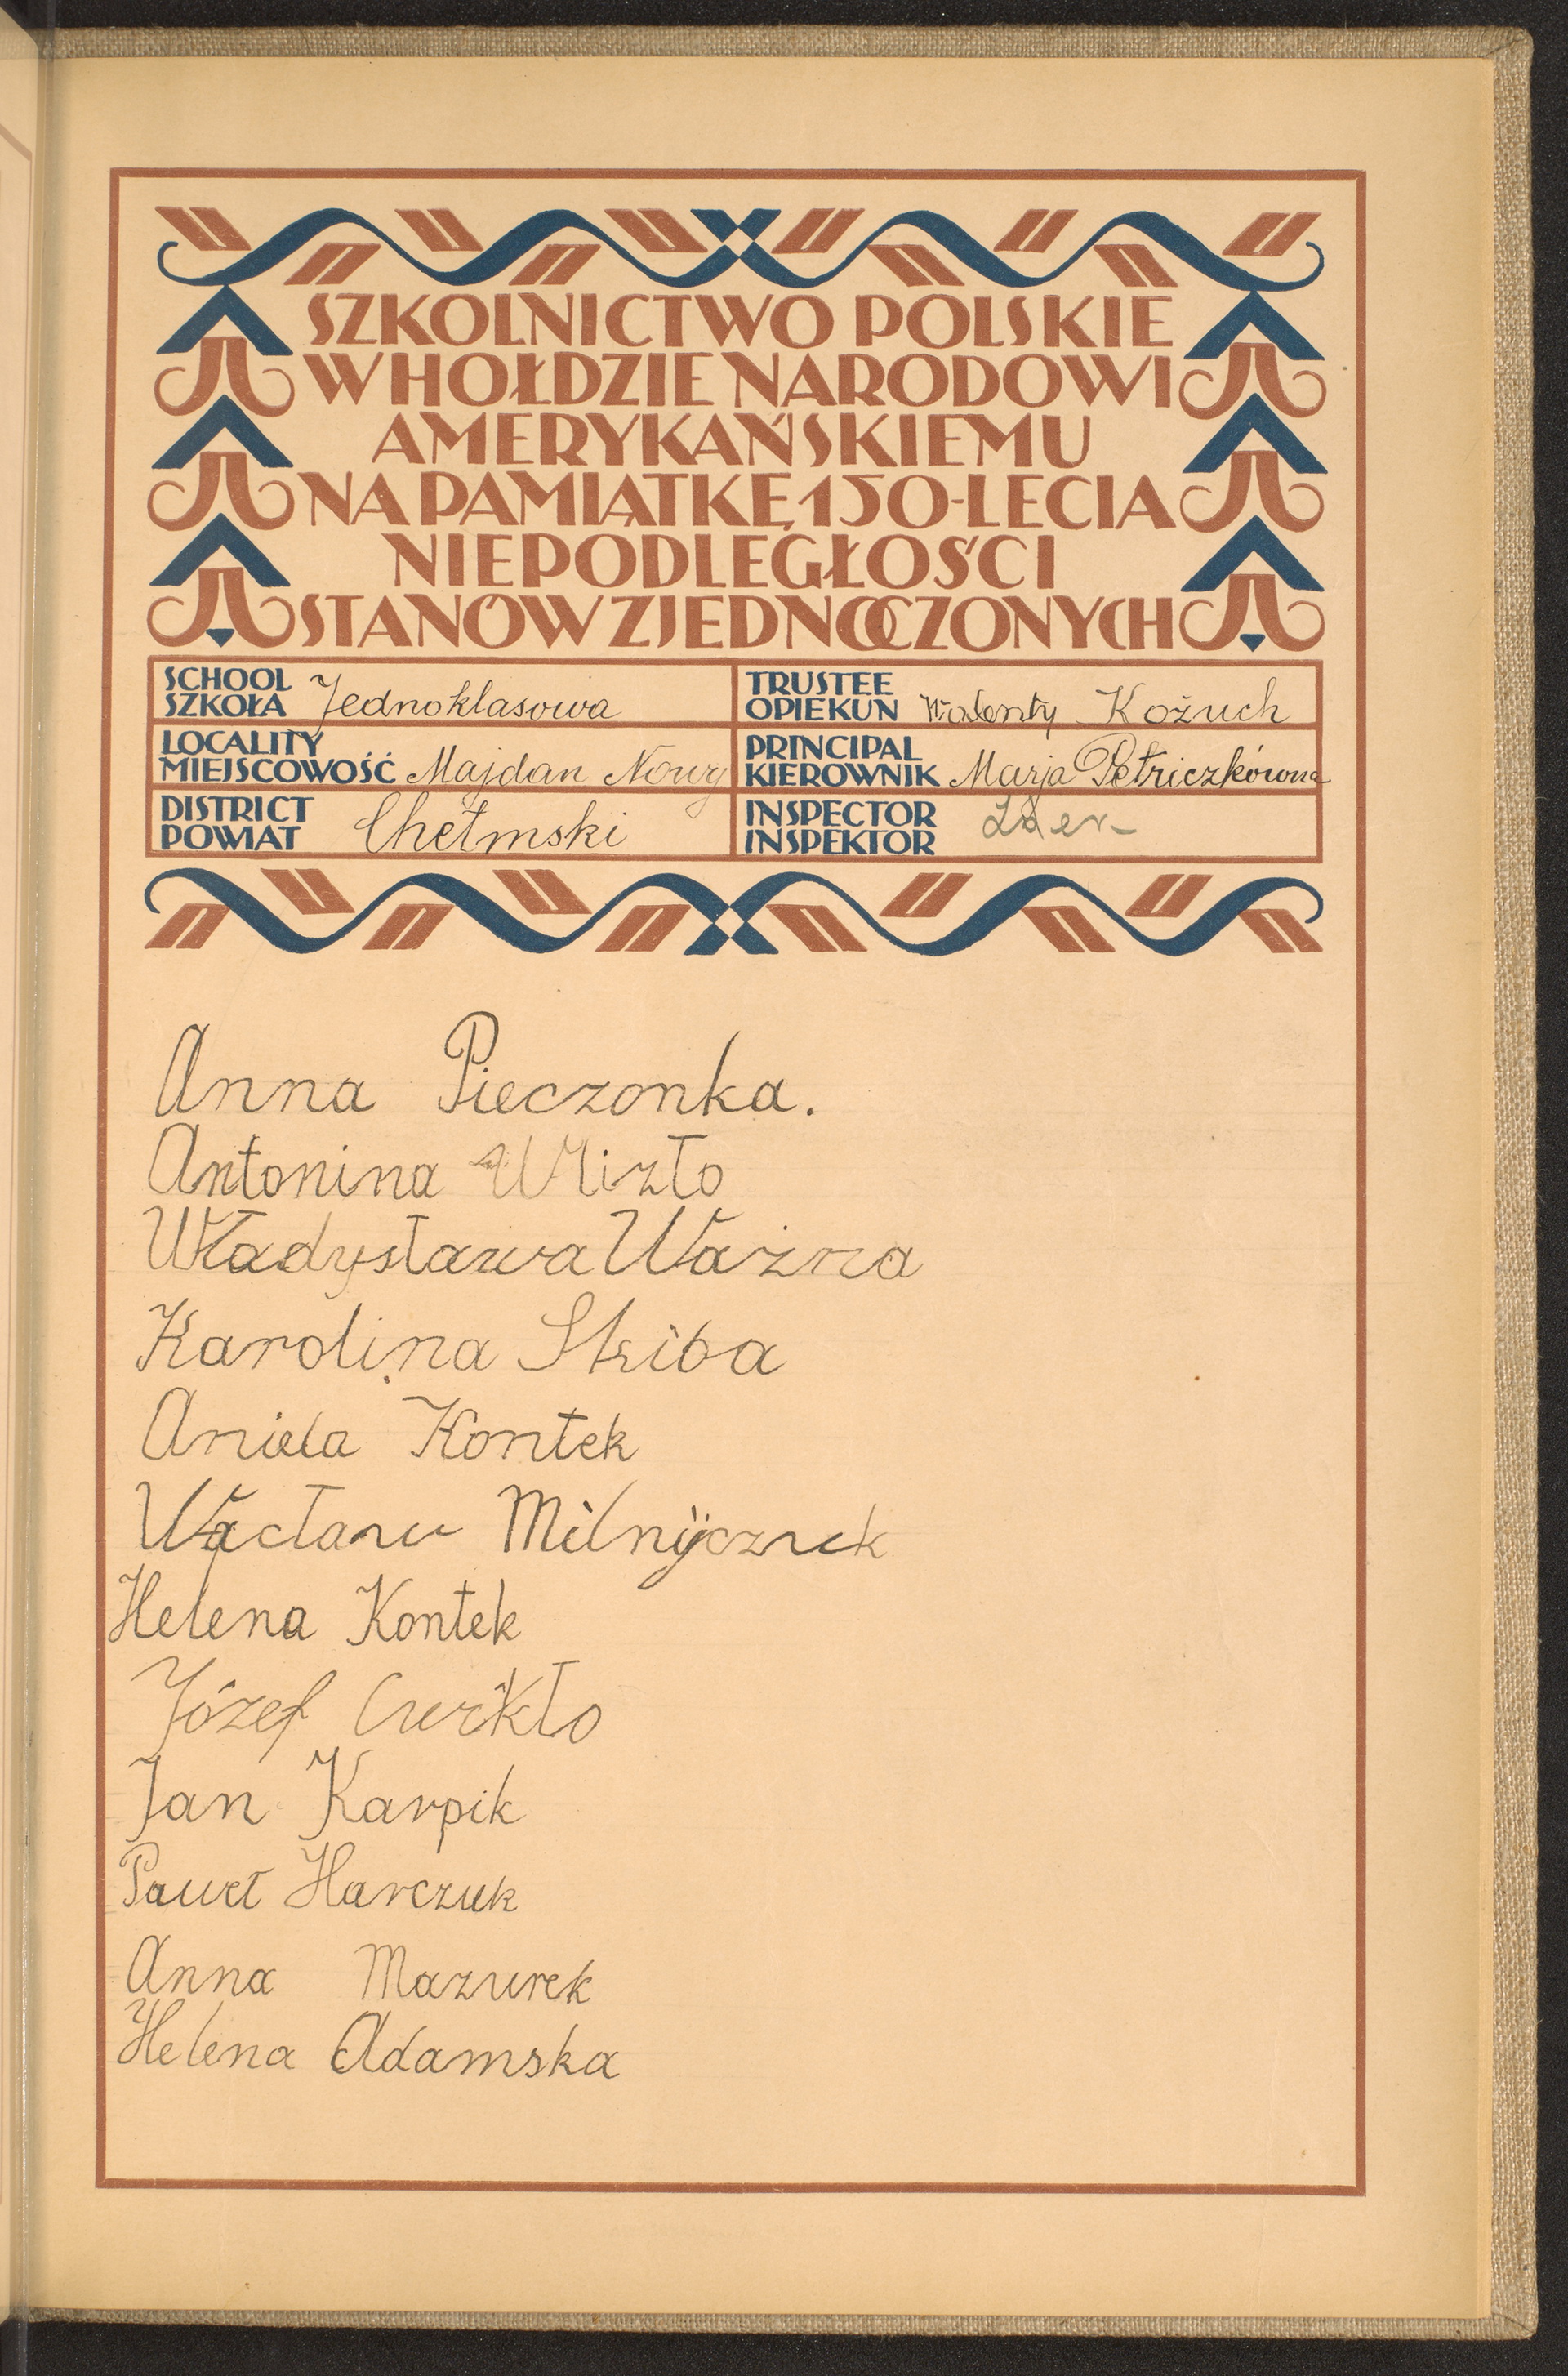 SZKOLNICTWO POLSKIE
W HOŁDZIE NARODOWI
AMERYKAŃSKIEMU
NA PAMIĄTKĘ 150-LECIA
NIEPODLEGŁOŚCI
STANÓW ZJEDNOCZONYCH
SCHOOL
SZKOŁA Jednoklasowa
TRUSTEE
OPIEKUN Walenty Kożuch
LOCALITY
MIEJSCOWOŚĆ Majdan Nowy
PRINCIPAL
KIEROWNIK Marja Petriczkówna
DISTRICT
POWIAT Chełmski
INSPECTOR
INSPEKTOR
Anna Pieczonka.
Antonina Wizło
Władysława Ważna
Karolina Skiba
Aniela Kontek
Wacław Milnijczuk
Helena Kontek
Józef Ćwikło
Jan Karpik
Paweł Harczuk
Anna Mazurek
Helena Adamska